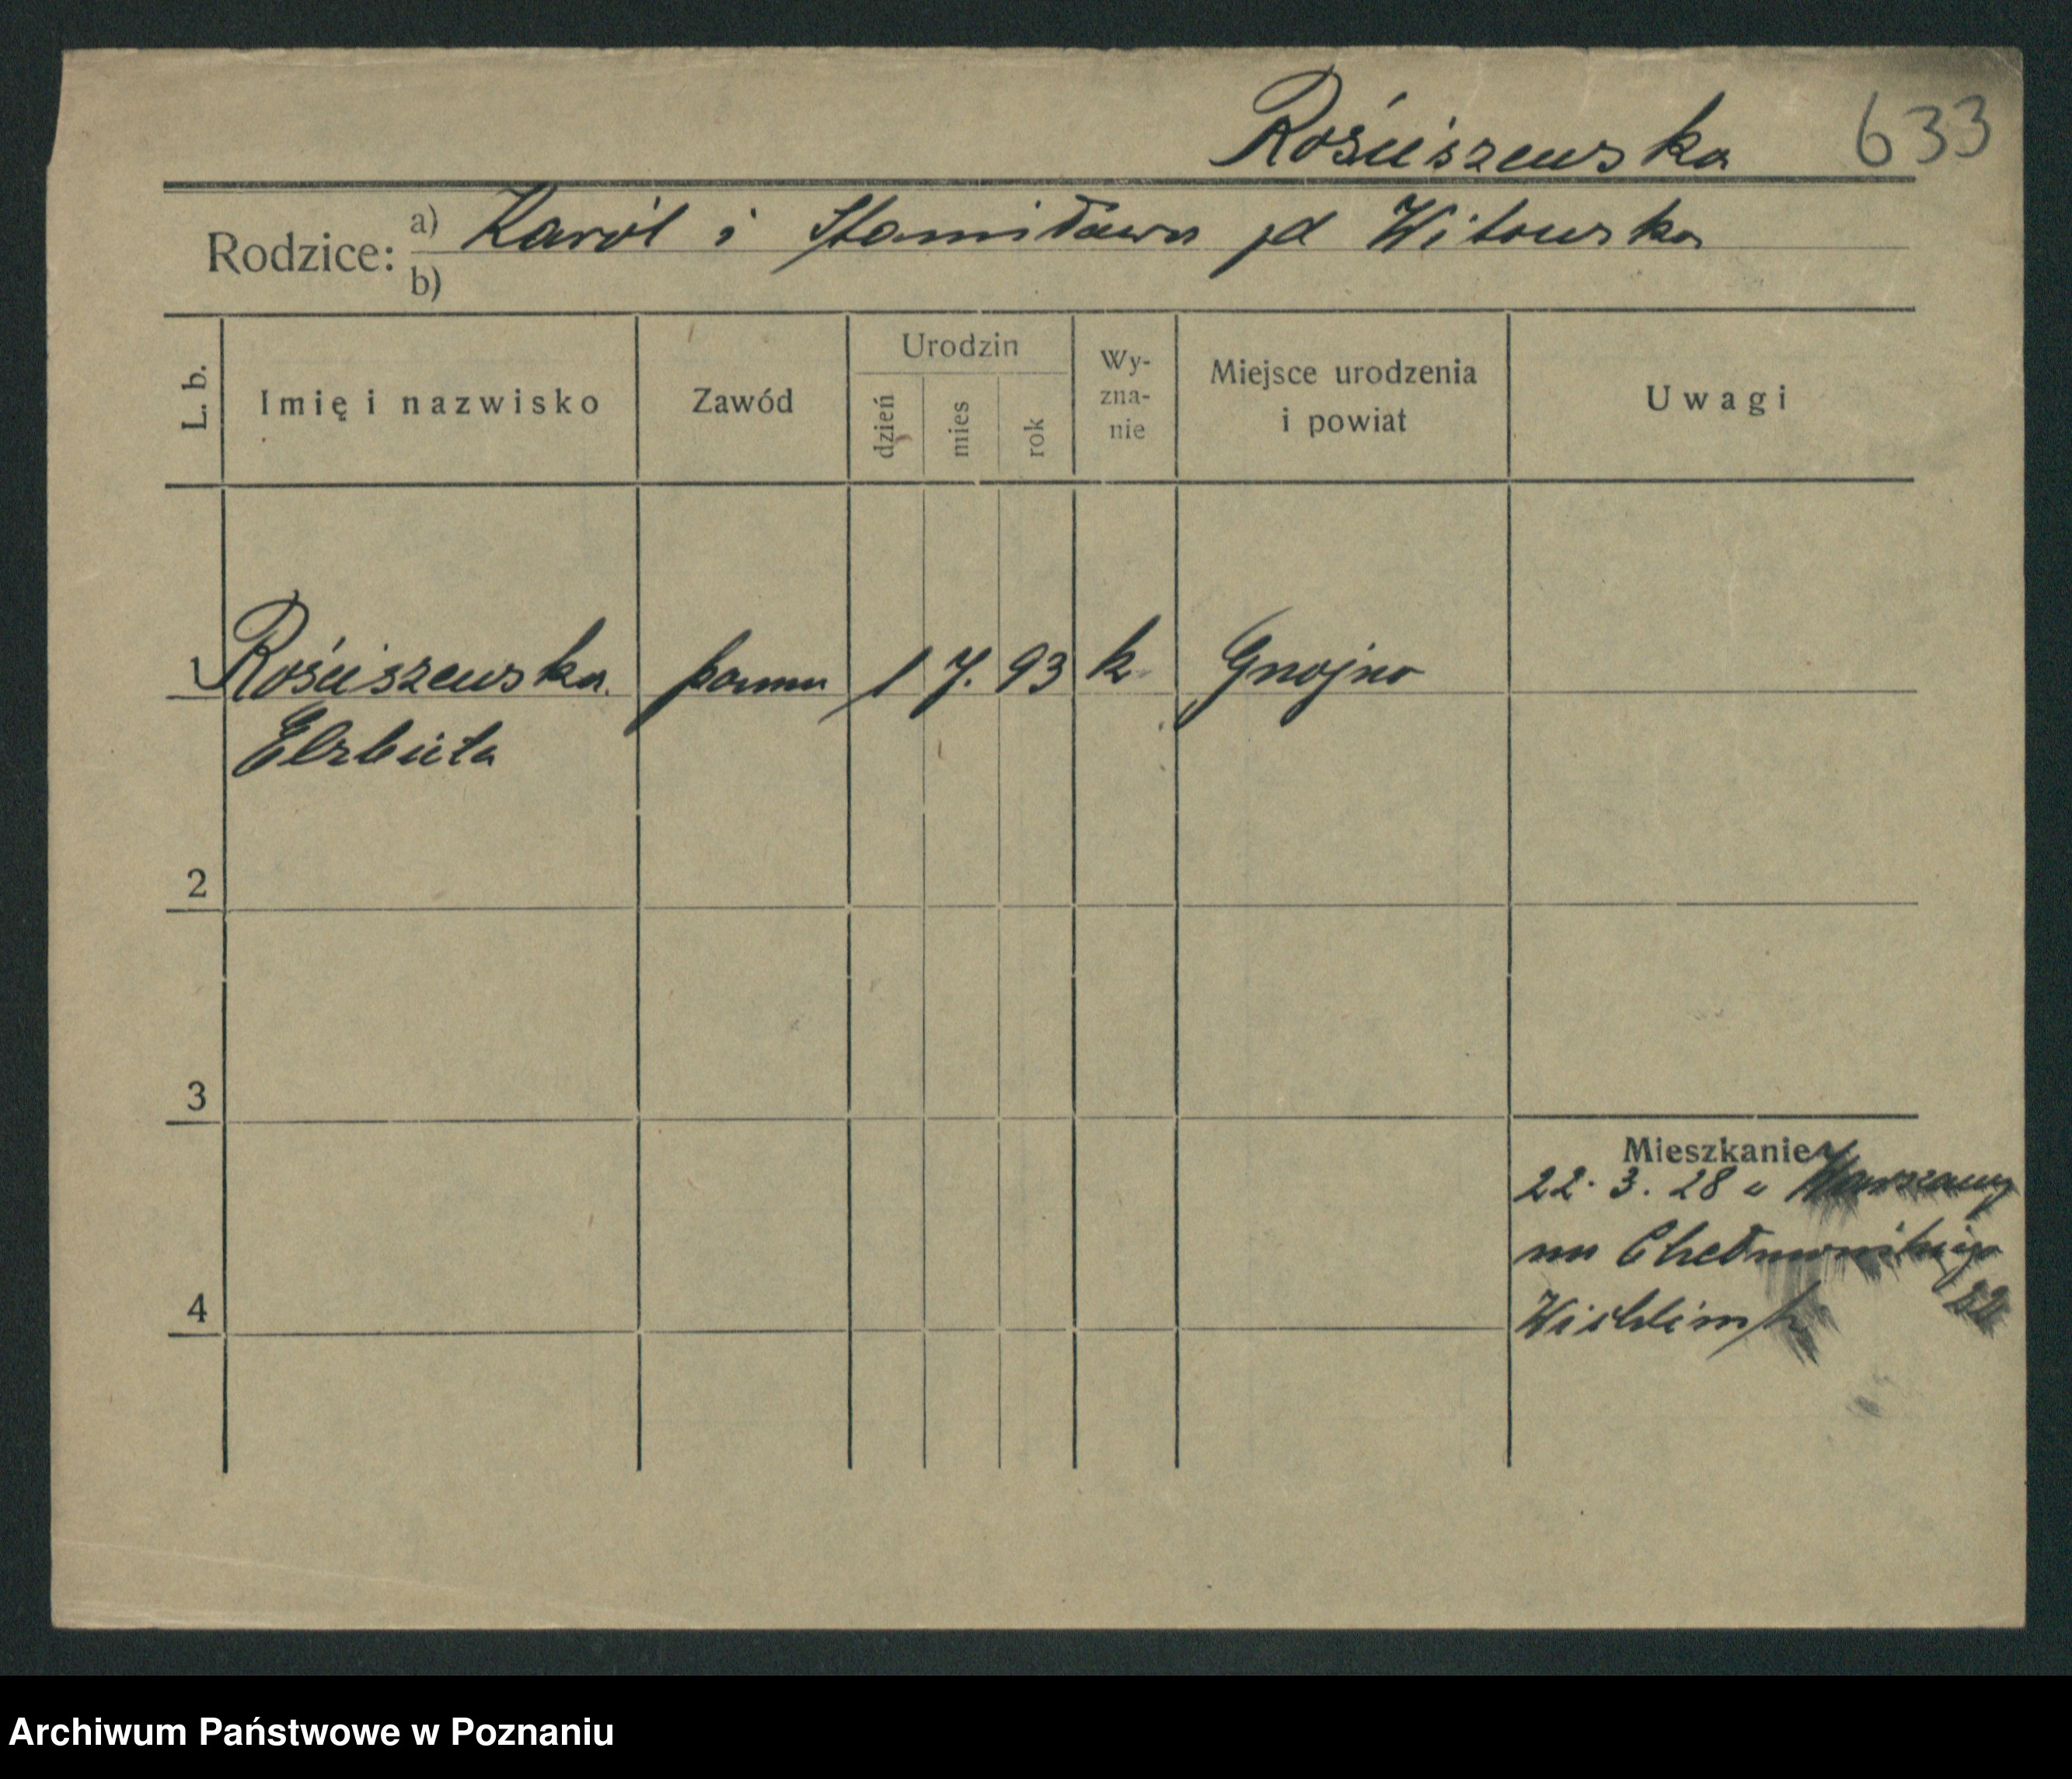 Rościszewska 633
Rodzice: a) Karol i Stanisława zd Witowska
b)
L. b. Imię i nazwisko Zawód Urodzin dzień mies rok Wy-zna-nie Miejsce urodzenia i powiat Uwagi
1 Rościszewska panna 1 7. 93 k Gnojno
Elzbieta
2
3
4
Mieszkanie
22. 3. 28 z Warszawy
na Chełmońskiego
22
Archiwum Państwowe w Poznaniu